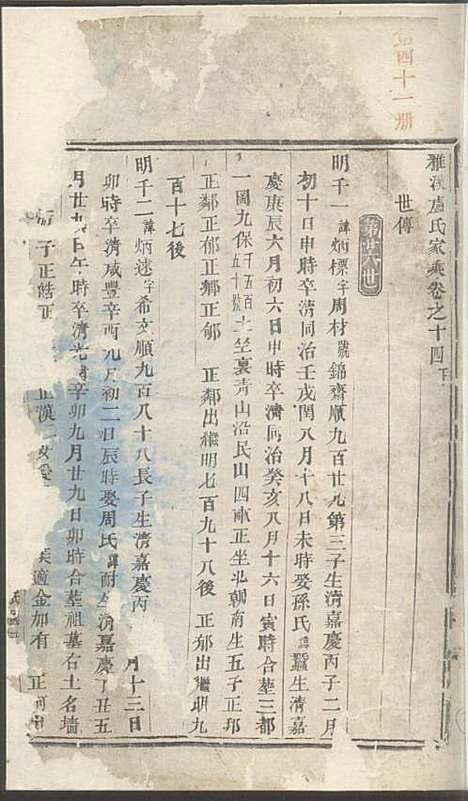 第四十一册
雅溪盧氏家乘卷之十四下
世傳
第廿八世
明千一諱炳標字周材號錦齋順九百廿九第三子生清嘉慶丙子二月
初十日申時卒清同治壬戌閏八月十八日未時娶孫氏諱生清嘉
慶庚辰六月初六日申時卒清同治癸亥八月十六日寅時合塟三都
一圖九保千五百五十號土坐裏青山沿民山四畝正坐北朝南生五子正邦
正鄰正郁正鄉正郇 正鄰出繼明七百九十八後 正郁出繼明九
百十七後
明千二諱炳速字希文順九百八十八長子生清嘉慶丙 月十三日
卯時卒清咸豐辛酉九月初二日辰時娶周氏諱耐生清嘉慶丁丑五
月廿 日午時卒清光緒辛卯九月廿九日卯時合塟祖墓右土名墙
子正皓正 正漢一女愛 適金加有 正